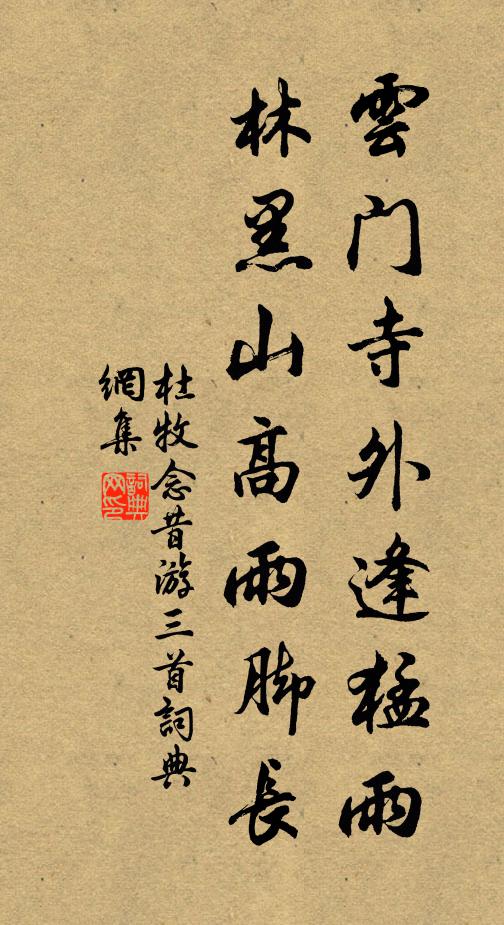 雲门寺外逢猛雨
林黑山高雨脚長
杜牧念昔游三首詞典
網集
詞典
网印